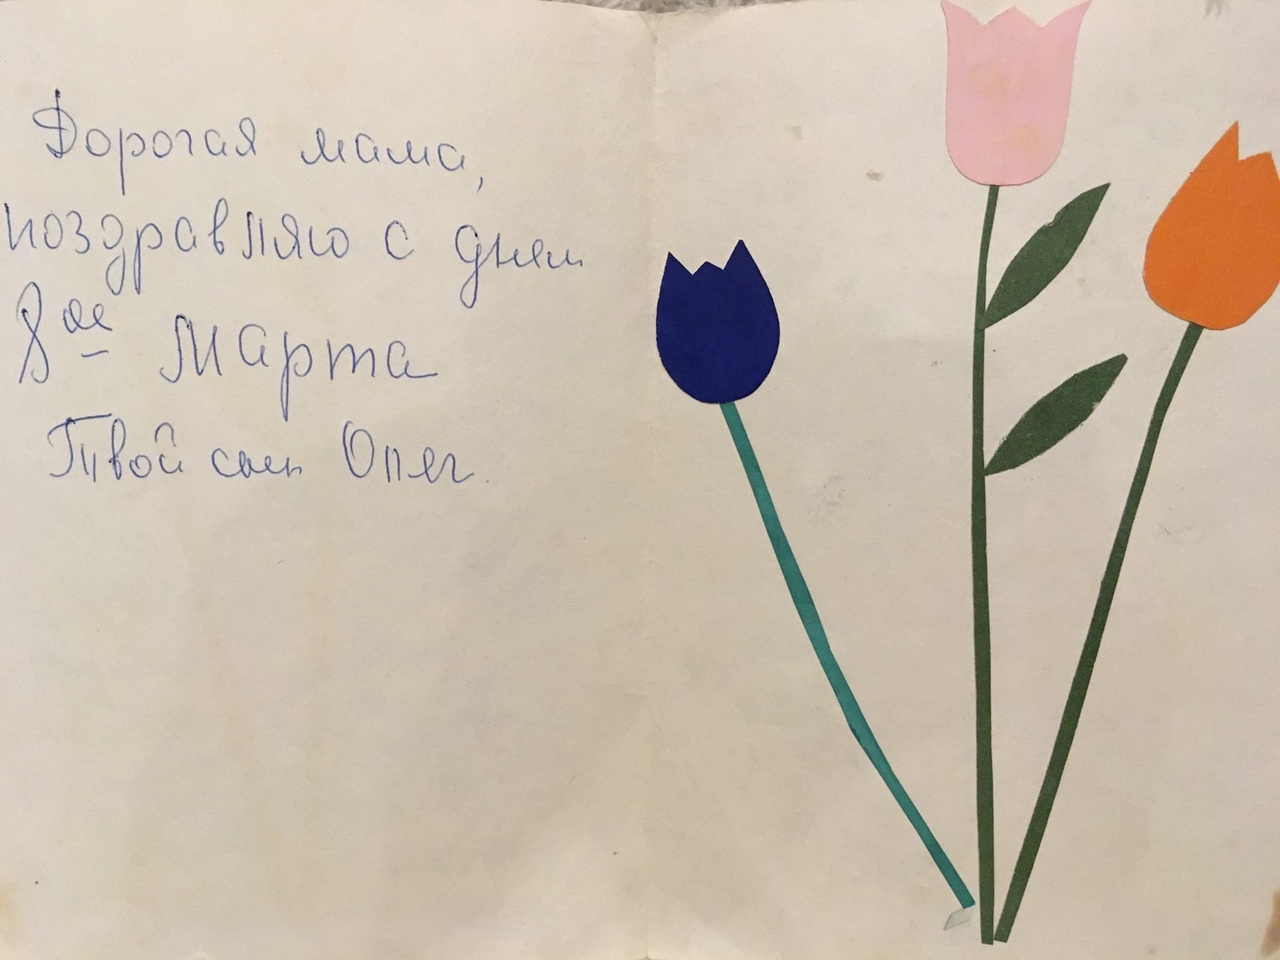 Дорогая мама,
поздравляю с днем
8ое Марта
Твой сын Олег.